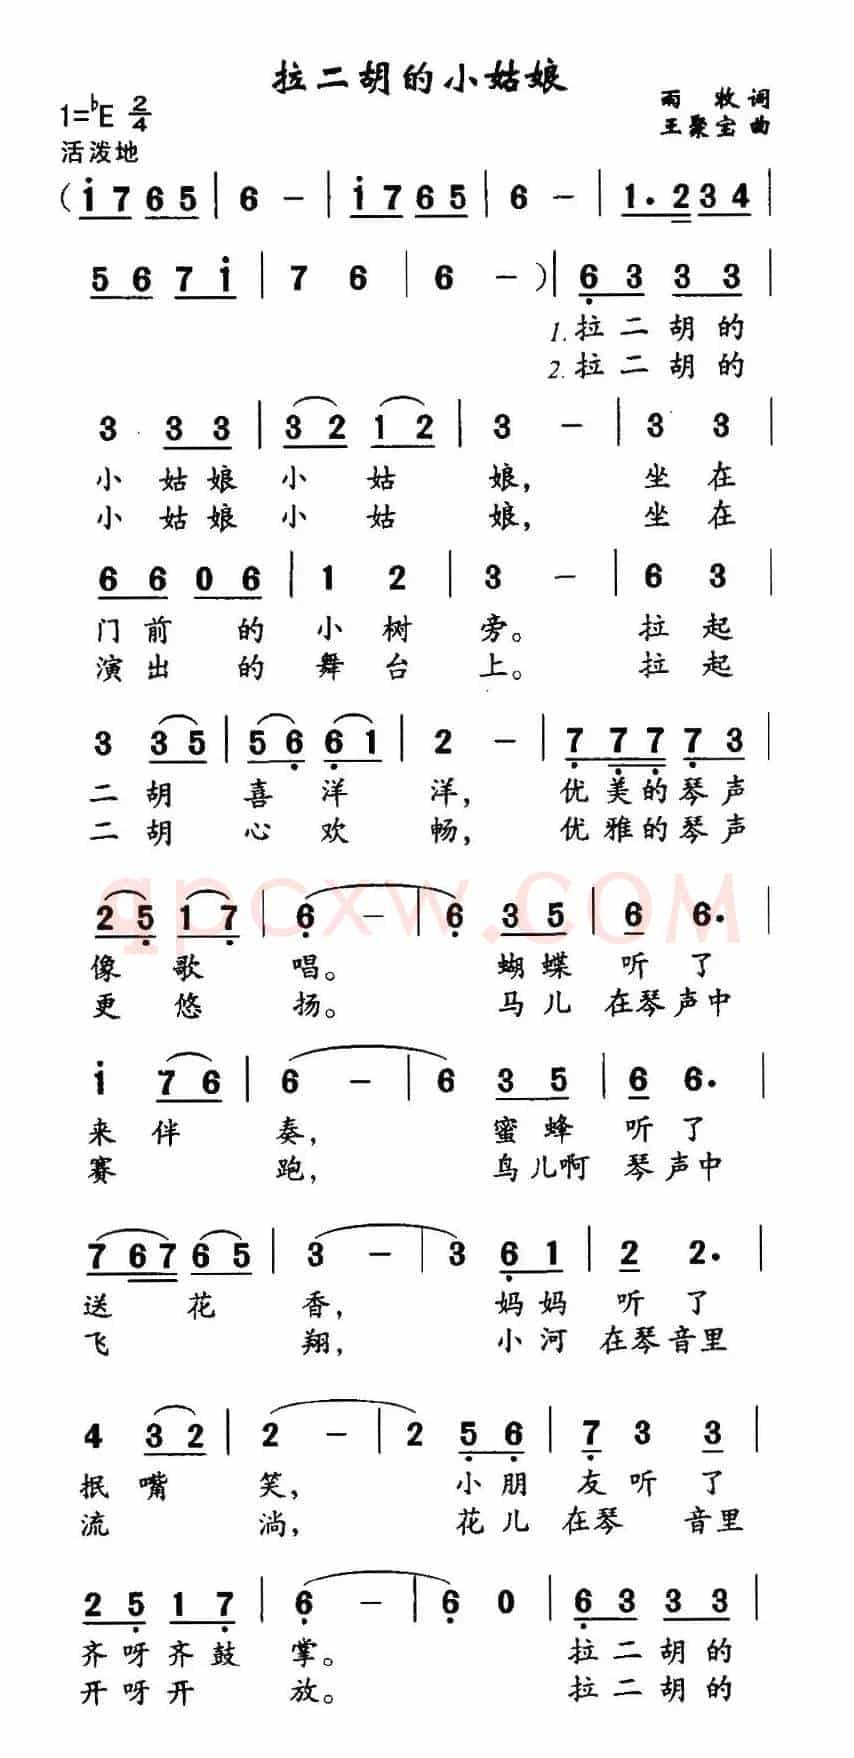 拉二胡的小姑娘
1=♭E 2/4
雨 牧 词
王聚宝 曲
活泼地
( i 7 6 5 | 6 － | i 7 6 5 | 6 － | 1. 2 3 4 |
5 6 7 i | 7 6 | 6 － ) | 6 3 3 3 |
1.拉二胡的
2.拉二胡的
3 3 3 | 3 2 1 2 | 3 － | 3 3 |
小 姑娘 小 姑 娘, 坐 在
小 姑娘 小 姑 娘, 坐 在
6 6 0 6 | 1 2 | 3 － | 6 3 |
门前 的 小 树 旁。 拉 起
演出 的 舞 台 上。 拉 起
3 3 5 | 5 6 6 1 | 2 － | 7 7 7 7 3 |
二 胡 喜 洋 洋, 优美的琴声
二 胡 心 欢 畅, 优雅的琴声
2 5 1 7 | 6 － | 6 3 5 | 6 6. |
像 歌 唱。 蝴蝶 听 了
更 悠 扬。 马儿 在琴声中
qpcxw.COM
i 7 6 | 6 － | 6 3 5 | 6 6. |
来 伴 奏, 蜜蜂 听 了
赛 跑, 鸟儿啊 琴声中
7 6 7 6 5 | 3 － | 3 6 1 | 2 2. |
送 花 香, 妈妈 听 了
飞 翔, 小河 在琴音里
4 3 2 | 2 － | 2 5 6 | 7 3 3 |
抿 嘴 笑, 小朋 友听 了
流 淌, 花儿 在琴 音里
2 5 1 7 | 6 － | 6 0 | 6 3 3 3 |
齐呀齐鼓 掌。 拉二胡的
开呀开 放。 拉二胡的